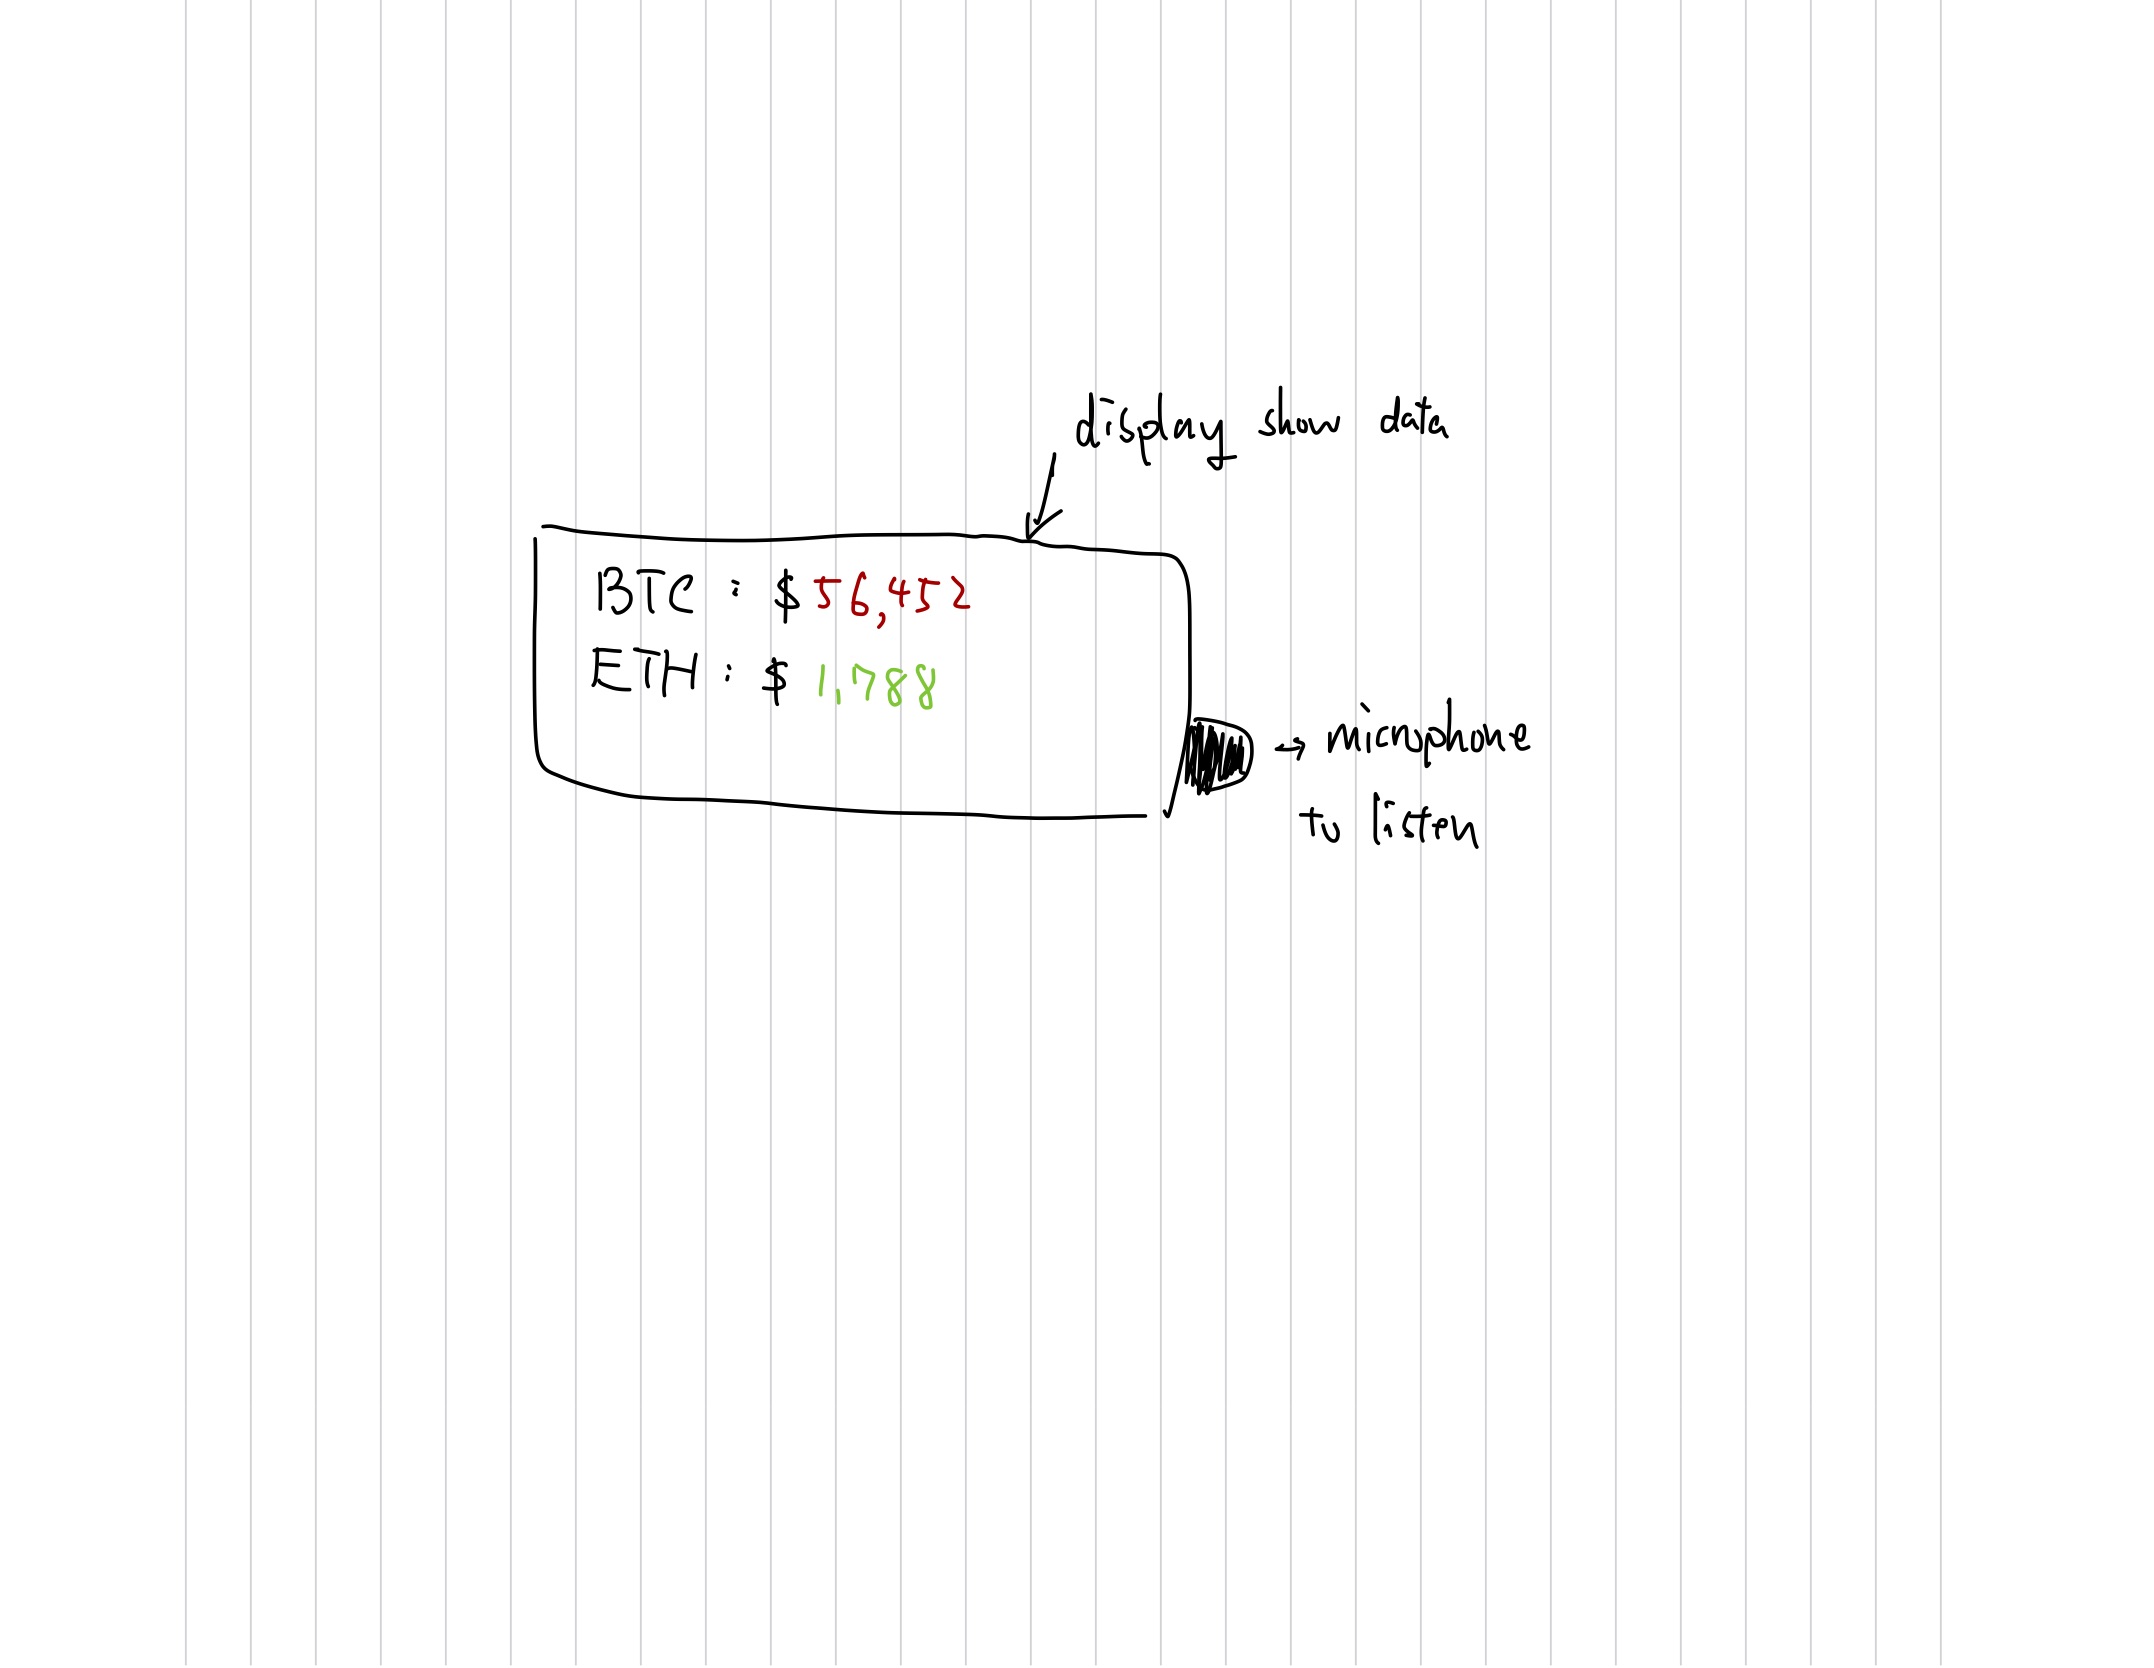 display show data
BTC : $56,452
ETH : $1,788
→ microphone
to listen